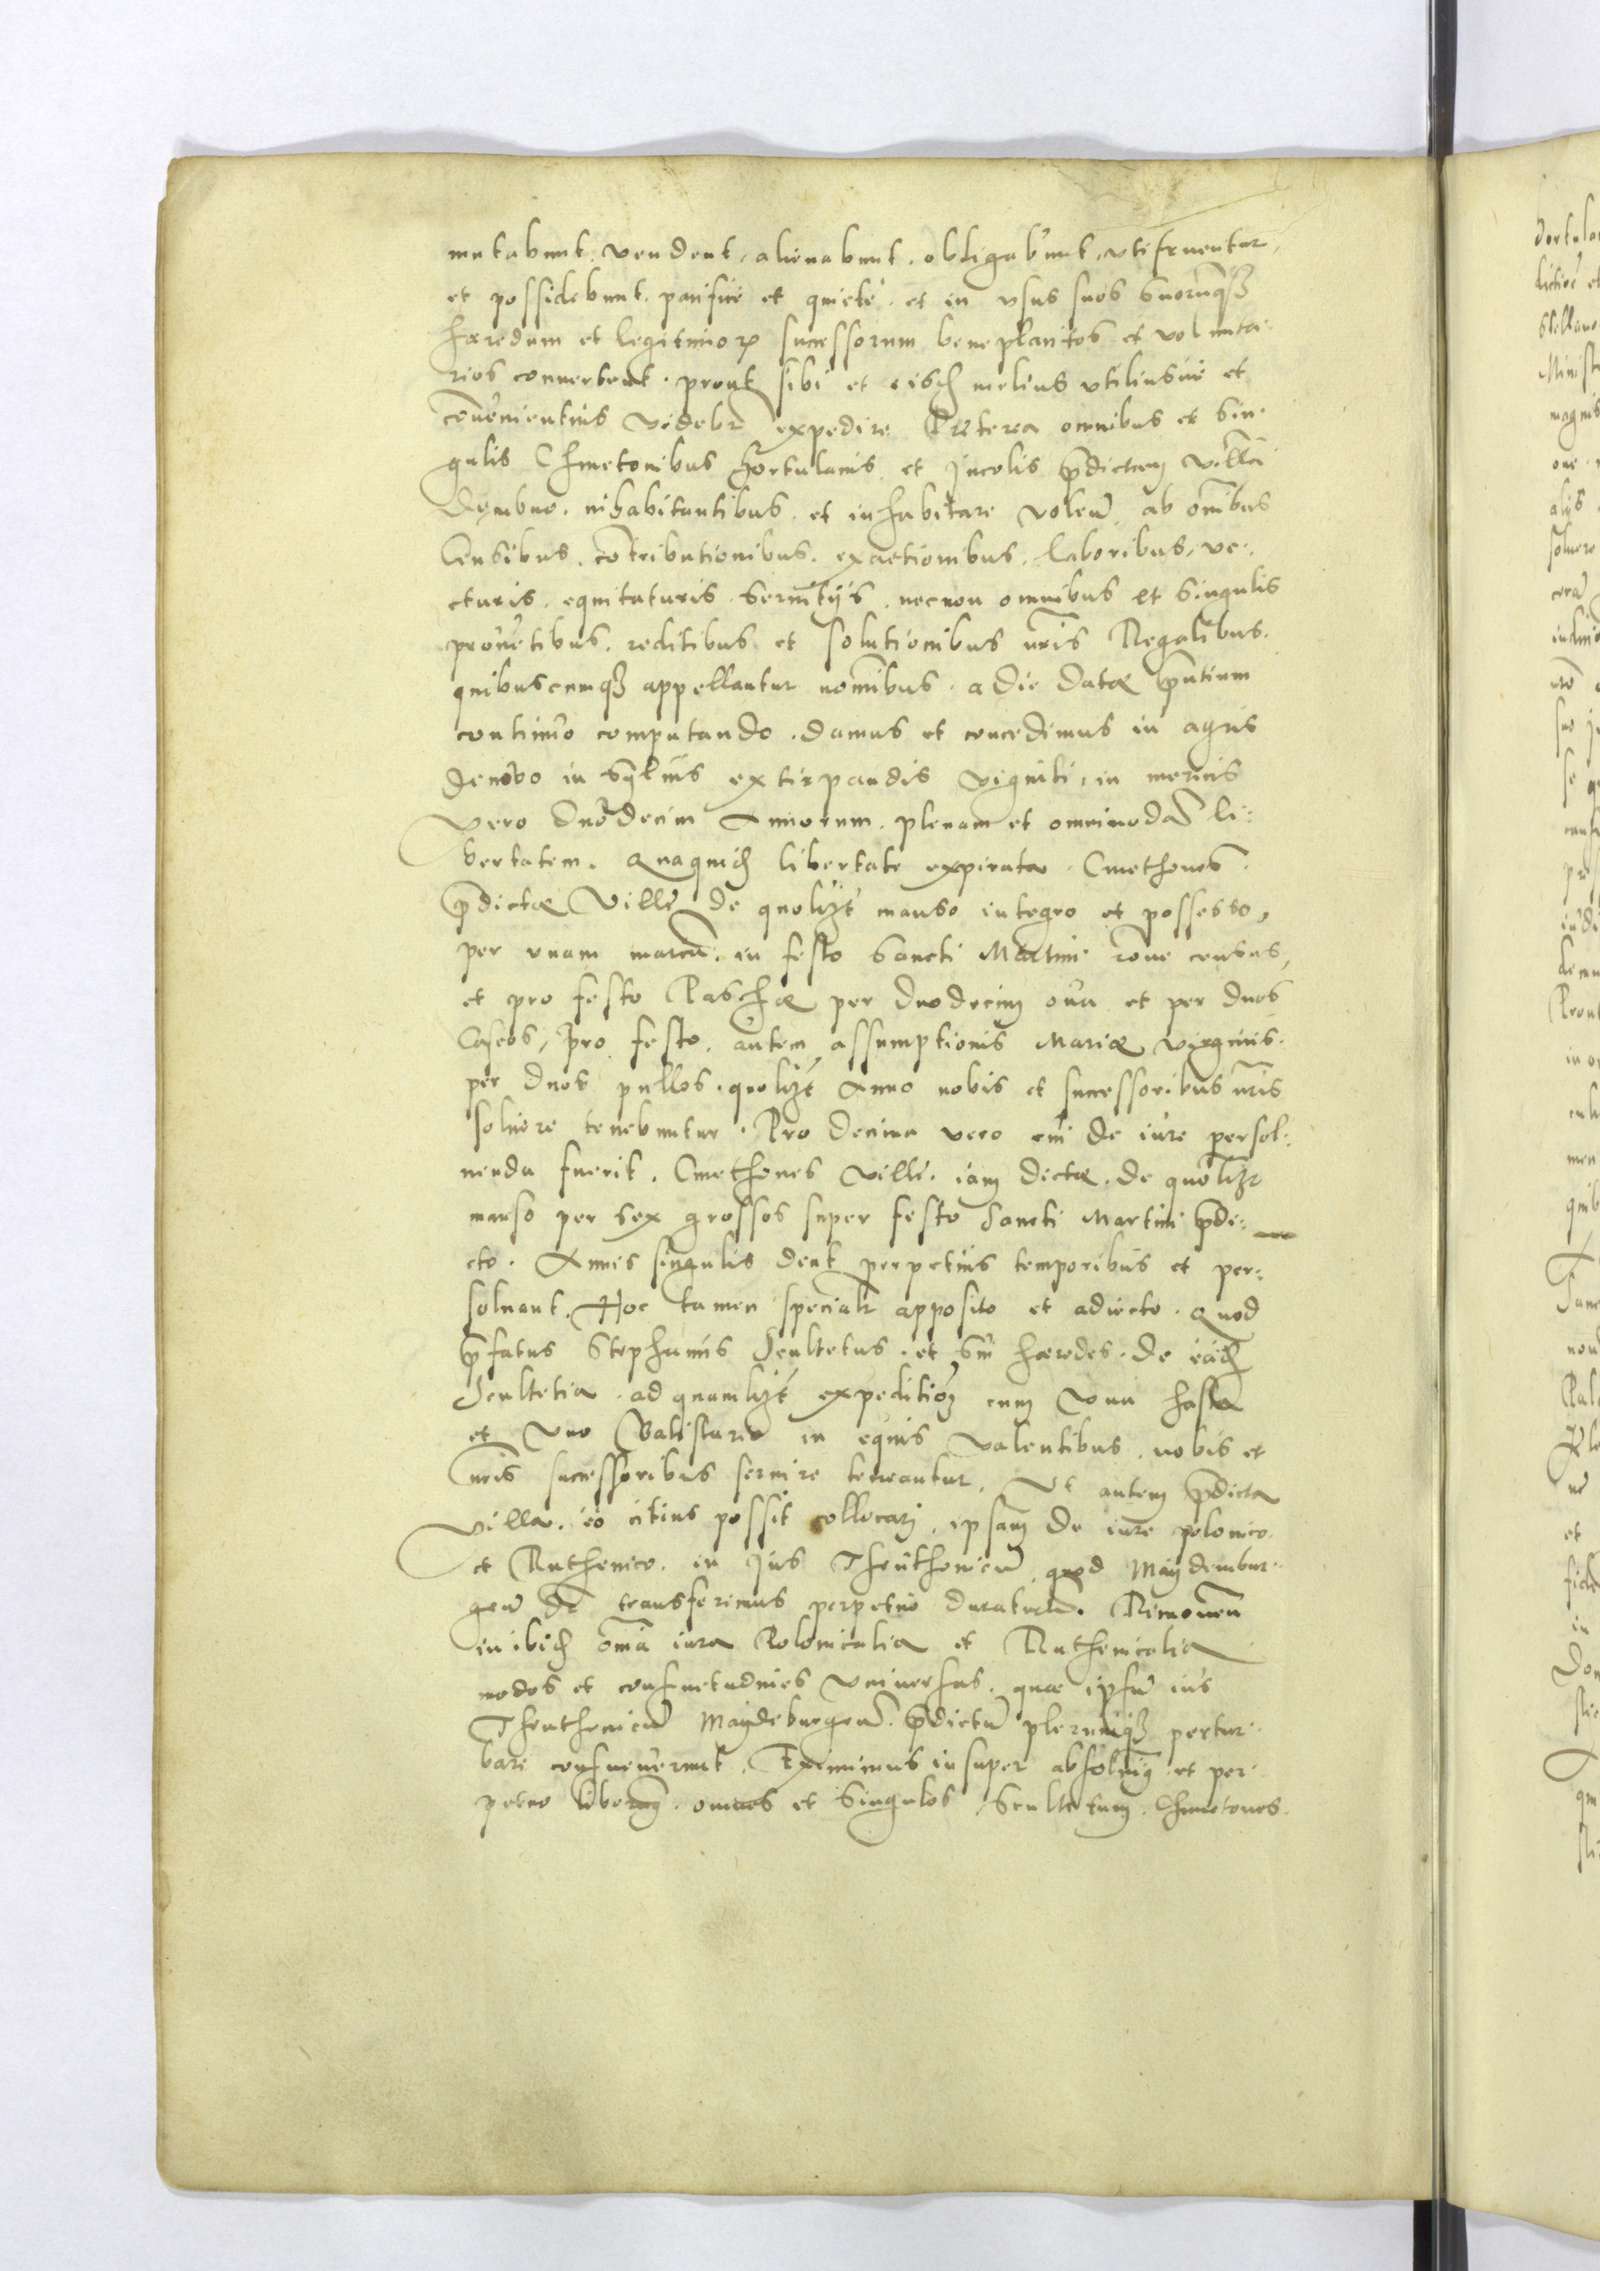 mutabunt, vendent, alienabunt, obligabunt, vtifruentur,
et possidebunt, pacificè et quietè, et in vsus suos suorūqȝ
hæredum et legitimoꝝ successorum beneplacitos et volunta-
rios conuertent. prout sibi et eisd melius vtiliusúe et
conuenientius videbr expedire. Præterea omnibus et sin-
gulis Chmetonibus hortulanis et Incolis p̄dictam villā
Dembno inhabitantibus et inhabitare volen̄, ab om̄ibus
Censibus, cōtributionibus, exactionibus, laboribus, ve-
cturis, equitaturis, seruitijs, necnon omnibus et singulis
prouētibus, reditibus et solutionibus nr̄is Regalibus
quibuscumqȝ appellantur nom̄ibus, a die datæ p̄ntium
continuò computando, damus et concedimus in agris
denovo in syluis extirpandis viginti, in mericis
vero duodecim Annorum, plenam et omnimodā li-
bertatem. Quaquid libertate expirata, Cmethones
p̄dictæ Villæ de quolibet manso integro et possesso,
per vnam marcā, in festo Sancti Martini rōne census,
et pro festo Paschæ per duodecim oua et per duos
Caseos, Pro festo autem assumptionis Mariæ virginis
per duos pullos, quolibet Anno nobis et successoribus nr̄is
soluere tenebuntur. Pro decima vero cui de iure persol-
uenda fuerit, Cmethones villæ iam dictæ, de quolibet
manso per sex grossos super festo Sancti Martini p̄di-
cto, Annis singulis dent perpetuis temporibus et per-
soluant. Hoc tamen specialr apposito et adiecto, quod
p̄fatus Stephanus Scultetus et sui hæredes de eād
Scultetia, ad quamlibet expeditiōȝ cum vna hasta
et vno Balistario in equis valentibus, nobis et
nr̄is successoribus seruire teneantur. Vt autem p̄dicta
villa, eò citius possit collocari, ipsam de iure polonico
et Ruthenico in Jus Theuthonicū quod Maydembur-
gen̄ dr̄ transferimus perpetuo duraturū. Remouen̄
inibid om̄ia iura Polonicalia et Ruthenicalia
modos et consuetudines vniuersas, quæ ipsū ius
Theuthonicū Maydeburgen̄ p̄dictū plerumqȝ pertur-
bare consueuerunt. Eximimus insuper absoluimȝ et per-
petuo liberamȝ omnes et singulos, Scultetum, Chmetones